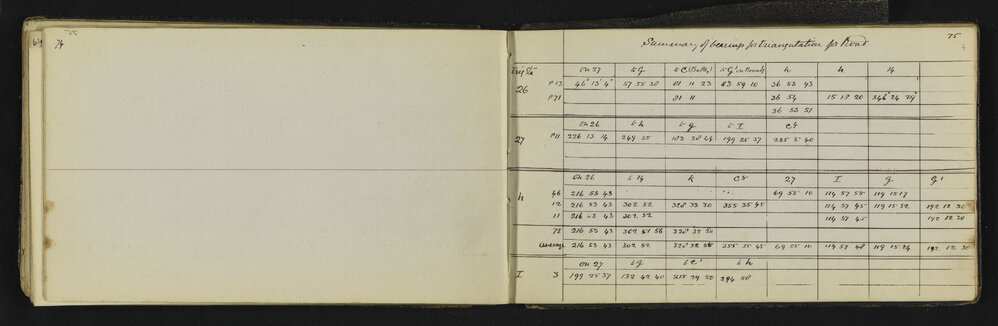 74
75
Summary of bearings for triangulation for Road
Trig Stn on 27 to G to C (Battery) to G' h k 14
26 P 13 46° 13' 4" 57 55 30 81 11 23 83 59 10 36 53 43
P 71 81 11 36 54 15 19 20 346° 24' 29"
36 53 51
on 26 to h to g to I C5
27 P 11 226 13 14 249 55 183 38 44 199 25 37 225 5 40
on 26 to 14 k C5 27 I g g'
h 46 216 53 43 69 55 10 114 57 53 119 15 17
12 216 53 43 302 52 328 33 30 355 35 45 114 57 45 119 15 32 192 12 30
11 216 53 43 302 52 114 57 45 192 12 30
72 216 53 43 302 51 56 328 32 20
average 216 53 43 302 52 328 32 55 355 35 45 69 55 10 114 57 48 119 15 24 192 12 30
on 27 to g to C' to h
I 3 199 25 37 132 42 40 215 29 294 58